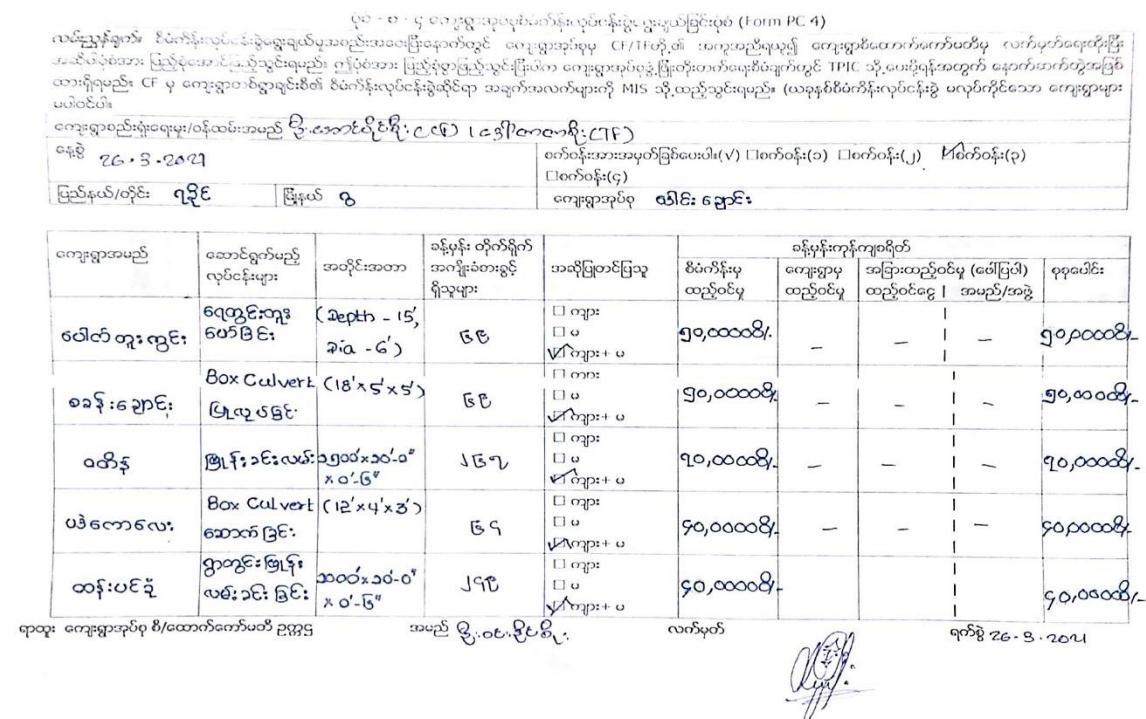 ပုံစံ - စ - ၄ ကျေးရွာအုပ်စုစီမံကိန်းလုပ်ငန်းခွဲရွေးချယ်ခြင်းပုံစံ (Form PC 4)
လမ်းညွှန်ချက်။ စီမံကိန်းလုပ်ငန်းခွဲရွေးချယ်မှုအစည်းအဝေးပြီးနောက်တွင် ကျေးရွာအုပ်စုမှ CF/TFတို့၏ အကူအညီရယူ၍ ကျေးရွာစီထောက်ကော်မတီမှ လက်မှတ်ရေးထိုးပြီး
အဆိုပါပုံစံအား ပြည့်စုံအောင်ဖြည့်သွင်းရမည်။ ဤပုံစံအား ပြည့်စုံစွာဖြည့်သွင်းပြီးပါက ကျေးရွာအုပ်စုဖွံ့ဖြိုးတိုးတက်ရေးစီမံချက်တွင် TPIC သို့ပေးပို့ရန်အတွက် နောက်ဆက်တွဲအဖြစ်
ထားရှိရမည်။ CF မှ ကျေးရွာတစ်ရွာချင်းစီ၏ စီမံကိန်းလုပ်ငန်းခွဲဆိုင်ရာ အချက်အလက်များကို MIS သို့ထည့်သွင်းရမည်။ (ယခုနှစ်စီမံကိန်းလုပ်ငန်းခွဲ မလုပ်ကိုင်သော ကျေးရွာများ
မပါဝင်ပါ။
ကျေးရွာစည်းရုံးရေးမှူး/ဝန်ထမ်းအမည် ဦးအောင်ပိုင်စိုး (CF)
နေ့စွဲ 26.3.2021 စက်ဝန်းအားအမှတ်ခြစ်ပေးပါ။(√) □စက်ဝန်း(၁) □စက်ဝန်း(၂) ☑စက်ဝန်း(၃)
□စက်ဝန်း(၄)
ပြည်နယ်/တိုင်း ရခိုင် မြို့နယ် ဂွ ကျေးရွာအုပ်စု ချောင်း
ကျေးရွာအမည် ဆောင်ရွက်မည့် လုပ်ငန်းများ အတိုင်းအတာ ခန့်မှန်း တိုက်ရိုက် အကျိုးခံစားခွင့် ရှိသူများ အဆိုပြုတင်ပြသူ ခန့်မှန်းကုန်ကျစရိတ်
စီမံကိန်းမှ ထည့်ဝင်မှု ကျေးရွာမှ ထည့်ဝင်မှု အခြားထည့်ဝင်မှု (ဖော်ပြပါ) ထည့်ဝင်ငွေ | အမည်/အဖွဲ့ စုစုပေါင်း
ပေါက်တူးကွင်း ရေတွင်းတူးဖော်ခြင်း (Depth - 15', Dia - 6') ၆၉ □ ကျား □ မ ☑ ကျား+ မ ၅၀,၀၀၀၀ိ/- – – – ၅၀,၀၀၀၀ိ/-
စခန်းချောင်း Box Culvert ပြုလုပ်ခြင်း (18'x5'x5') ၆၉ □ ကျား □ မ ☑ ကျား+ မ ၅၀,၀၀၀၀ိ/- – – – ၅၀,၀၀၀၀ိ/-
ဝတိန် မြို့နင်းခင်းလမ်း ၁၅၀၀'x၁၀'-၀" x ၀'-၆" ၂၆၇ □ ကျား □ မ ☑ ကျား+ မ ၇၀,၀၀၀၀ိ/- – – – ၇၀,၀၀၀၀ိ/-
ပဒဲကောလေး Box Culvert ဆောက်ခြင်း (12'x4'x3') ၆၄ □ ကျား □ မ ☑ ကျား+ မ ၄၀,၀၀၀၀ိ/- – – – ၄၀,၀၀၀၀ိ/-
ထန်းပင်ခုံ ရွာတွင်း လမ်းခင်းခြင်း x၁၀'-၀" x ၀'-၆" ၂၄၉ □ ကျား □ မ ☑ ကျား+ မ ၄၀,၀၀၀၀ိ/- ၄၀,၀၀၀၀ိ/-
ရာထူး ကျေးရွာအုပ်စု စီ/ထောက်ကော်မတီ ဥက္ကဋ္ဌ အမည် ဦးဝင်းနိုင်စိုး လက်မှတ် ရက်စွဲ 26.3.2021